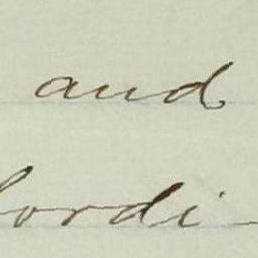 and
cordi-